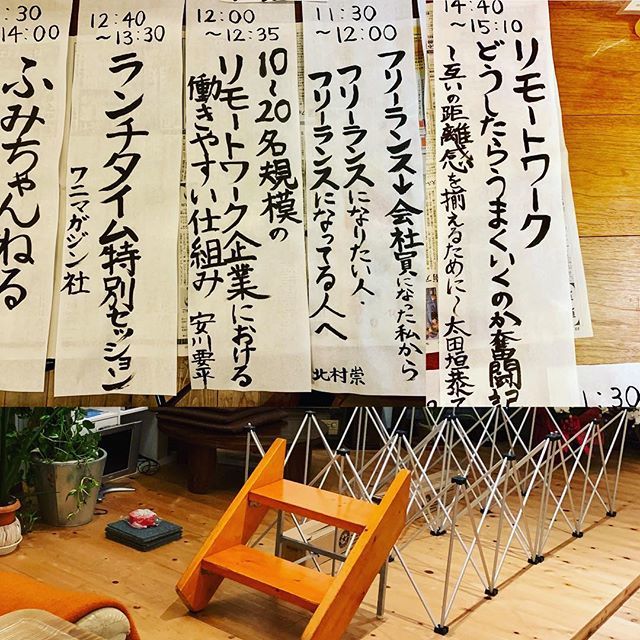 14:40
～15:10
リモートワーク
どうしたらうまくいくのか奮闘記
～互いの距離感を揃えるために～ 太田垣恭
11:30
～12:00
フリーランス↓会社員になった私から
フリーランスになりたい人・
フリーランスになってる人へ
北村崇
12:00
～12:35
10～20名規模の
リモートワーク企業における
働きやすい仕組み 安川要平
12:40
～13:30
ランチタイム特別セッション
ワニマガジン社
:30
14:00
ふみちゃんねる
1:30